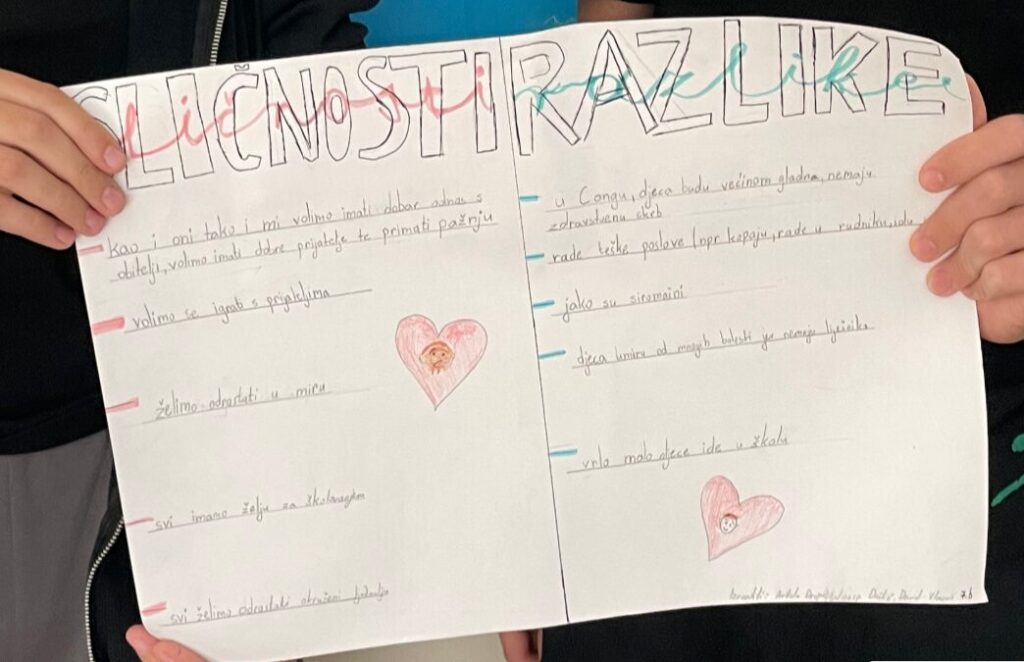 SLIČNOSTI
ličnosti
kao i oni tako i mi volimo imati dobar odnos s
obitelji, volimo imati dobre prijatelje te primati pažnju
volimo se igrati s prijateljima
želimo odrastati u miru
svi imamo želju za školovanjem
svi želimo odrastati okruženi
RAZLIKE
razlike
u Congu, djeca budu većinom gladna, nemaju
zdravstvenu skrb
rade teške poslove (npr kopaju, rade u rudniku, idu
jako su siromašni
djeca umiru od mnogih bolesti jer nemaju liječnika
vrlo malo djece ide u školu
David 7.b